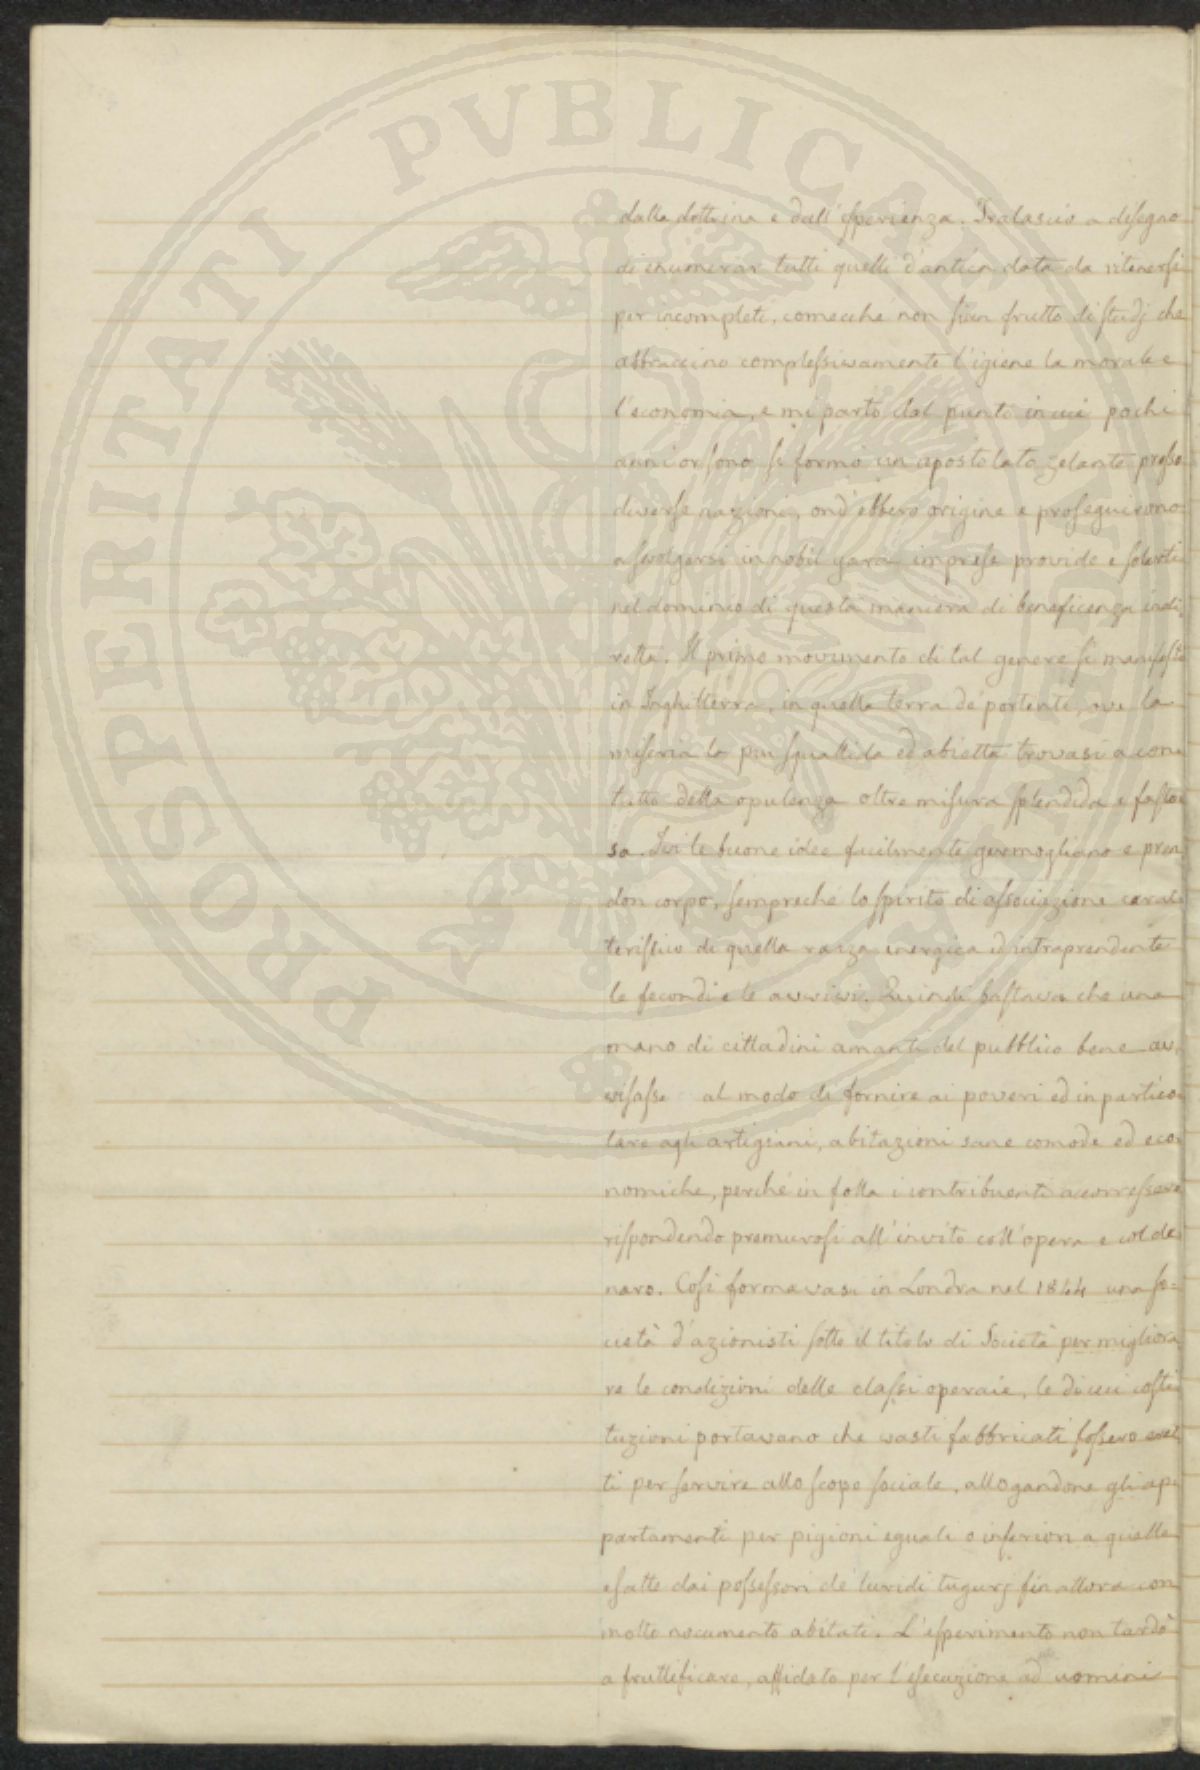 PROSPERITATI PVBLICAE AVGENDAE
dalla dottrina e dall'esperienza. Tralascio a disegno
di enumerar tutti quelli d'antica data da ritenersi
per incompleti, comecché non sien frutto di studj che
abbraccino complessivamente l'igiene la morale e
l'economia, e mi parto dal punto in cui pochi
anni or sono si formò un apostolato zelante presso
diverse nazioni, ond'ebbero origine e proseguirono
a svolgersi in nobil gara imprese provide e solerti
nel dominio di questa maniera di beneficenza indi,
retta. Il primo movimento di tal genere si manifestò
in Inghilterra, in quella terra de' portenti, ove la
miseria la più squallida ed abietta trovasi a con-
tatto della opulenza oltre misura splendida e fasto-
sa. Ivi le buone idee facilmente germogliano e pren,
don corpo, sempreché lo spirito di associazione carat-
teristico di quella razza energica ed intraprendente
le fecondi e le avvivi. Quindi bastava che una
mano di cittadini amanti del pubblico bene av,
visasse al modo di fornire ai poveri ed in partico-
lare agli artigiani, abitazioni sane comode ed eco-
nomiche, perché in folla i contribuenti accorressero
rispondendo premurosi all'invito coll'opera e col de-
naro. Così formavasi in Londra nel 1844 una so=
cietà d'azionisti sotto il titolo di Società per migliora,
re le condizioni delle classi operaie, le di cui costi-
tuzioni portavano che vasti fabbricati fossero eret,
ti per servire allo scopo sociale, allogandone gli ap-
partamenti per pigioni eguali o inferiori a quelle
esatte dai possessori de' luridi tugurj fin allora con
molto nocumento abitati. L'esperimento non tardò
a fruttificare, affidato per l'esecuzione ad uomini